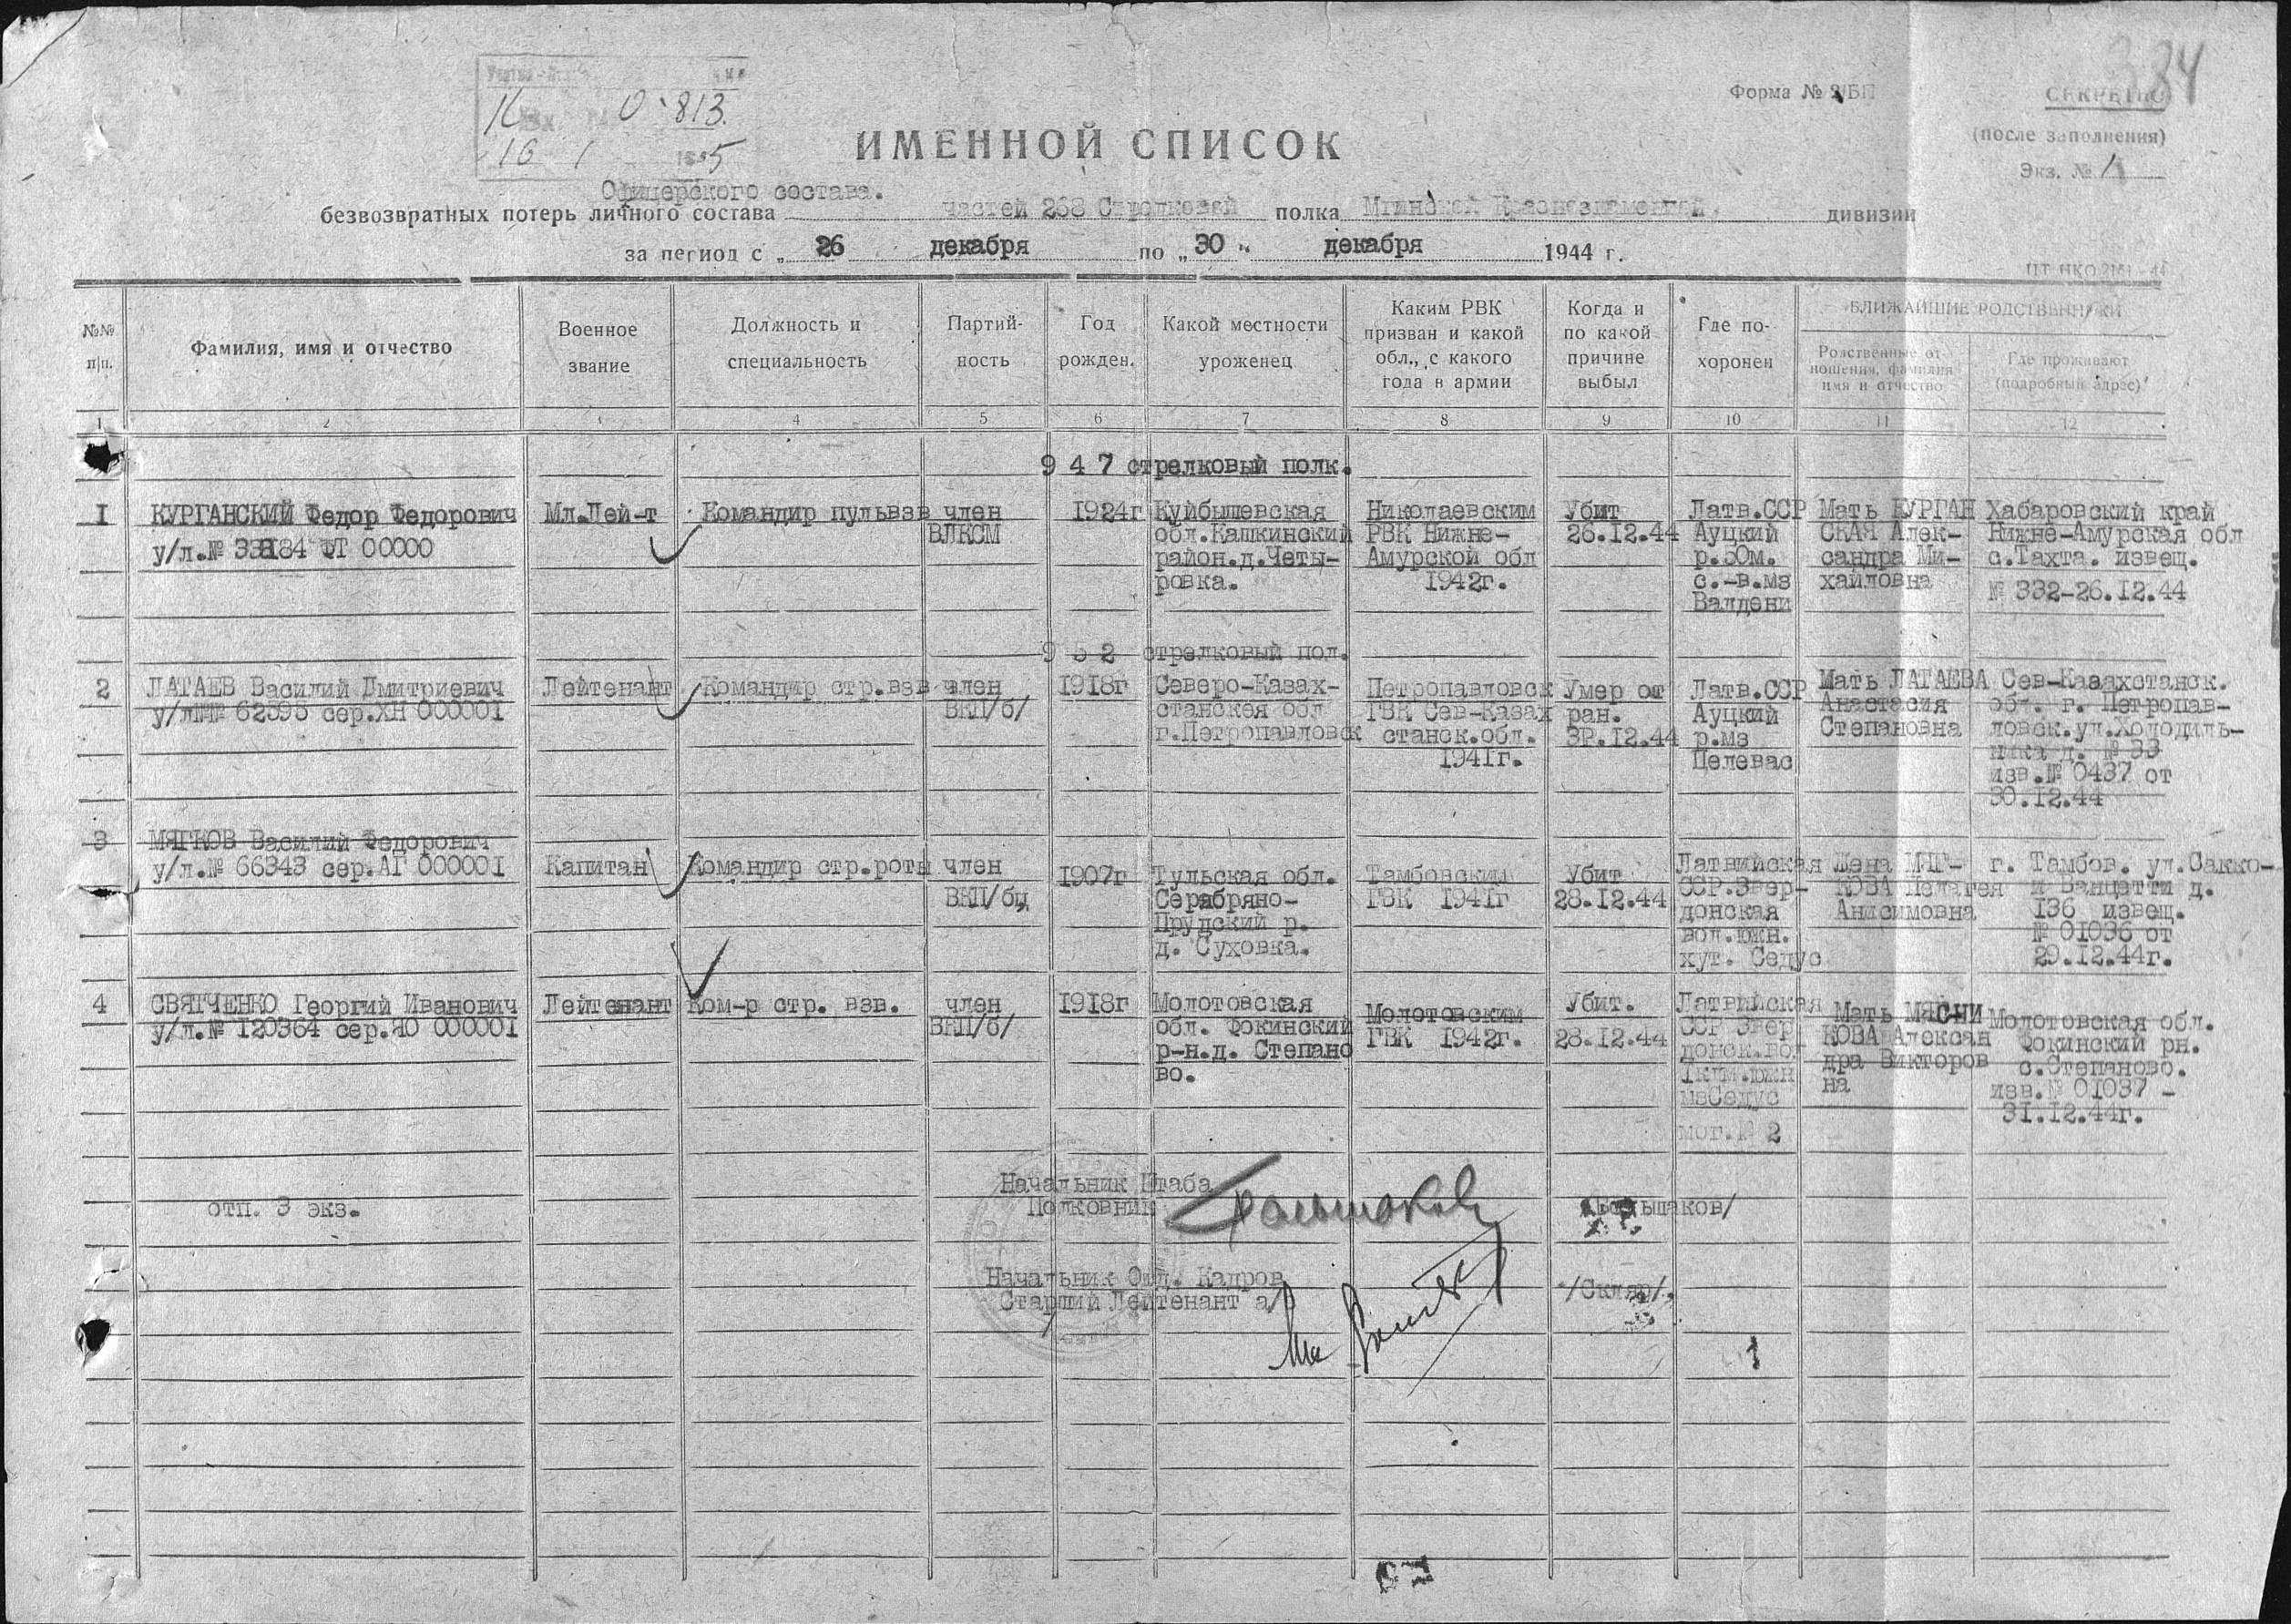 384
Форма № 2/БП
СЕКРЕТНО
(после заполнения)
Экз. № 1
0813
16 1 1945
ИМЕННОЙ СПИСОК
Офицерского состава.
безвозвратных потерь личного состава частей 268 Стрелковой полка Мгинской Краснознаменной. дивизии
за период с „ 26 декабря по „ 30 " декабря 1944 г.
№№ п/п.
Фамилия, имя и отчество
Военное звание
Должность и специальность
Партий-ность
Год рожден.
Какой местности уроженец
Каким РВК призван и какой обл., с какого года в армии
Когда и по какой причине выбыл
Где по-хоронен
БЛИЖАЙШИЕ РОДСТВЕННИКИ
Родственные от-ношения, фамилия имя и отчество
Где проживают (подробный адрес)
1 2 4 5 6 7 8 9 10 11 12
9 4 7 стрелковый полк.
1
КУРГАНСКИЙ Федор Федорович
у/л.№
00000
Мл.Лей-т
Командир пульвзв
член
ВЛКСМ
1924г
Куйбышевская
обл.Кашкинский
район.д.Четы-
ровка.
Николаевским
РВК Нижне-
Амурской обл
1942г.
Убит
26.12.44
Латв.ССР
Ауцкий
р.50м.
с.-в.мз
Валдени
Мать КУРГАН
СКАЯ Алек-
сандра Ми-
хайловна
Хабаровский край
Нижне-Амурская обл
с.Тахта. извещ.
№ 332-26.12.44
9 5 2 стрелковый пол.
2
ЛАТАЕВ Василий Дмитриевич
у/л№ 62595 сер.ХН 000001
Лейтенант
Командир стр.взв
член
ВКП/б/
1918г
Северо-Казах-
станская обл
г.Петропавловск
Петропавловск
ГВК Сев-Казах
станск.обл.
1941г.
Умер от
ран.
.12.44
Латв.ССР
Ауцкий
р.мз
Целевас
Мать ЛАТАЕВА
Анастасия
Степановна
Сев-Казахстанск.
обл. г. Петропав-
ловск.ул.Холодиль-
ника д. № 33
изв.№ 0437 от
30.12.44
3
МЯГКОВ Василий Федорович
у/л.№ 66343 сер.АГ 000001
Капитан
Командир стр.роты
член
ВКП/бц
1907г
Тульская обл.
Серабряно-
Прудский р.
д. Суховка.
Тамбовским
ГВК 1941г
Убит
28.12.44
Латвийская
ССР.Звер-
донская
вол.южн.
хут. Седус
Жена МЯГ-
КОВА Пелагея
Анисимовна
г. Тамбов. ул.Сакко-
и Ванцетти д.
136 извещ.
№ 01036 от
29.12.44г.
4
СВЯТЧЕНКО Георгий Иванович
у/л.№ 120364 сер.ЯО 000001
Лейтенант
Ком-р стр. взв.
член
ВКП/б/
1918г
Молотовская
обл. Фокинский
р-н.д. Степано
во.
Молотовским
ГВК 1942г.
Убит.
28.12.44
Латвийская
ССР Звер
донск.вол
1клм.южн
мзСедус
мог.№ 2
Мать МЯСНИ
КОВА Алексан
дра Викторов
на
Молотовская обл.
Фокинский рн.
с.Степаново.
изв.№ 01037 -
31.12.44г.
отп. 3 экз.
Начальник Штаба
Полковник
Большаков/
Начальник Отд. Кадров
Старший Лейтенант а/с
/Скляр/.
1